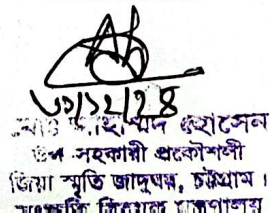 ৩১/১২/২৪
হোসেন
উপ সহকারী প্রকৌশলী
জিয়া স্মৃতি জাদুঘর, চট্টগ্রাম।
সংস্কৃতি বিষয়ক মন্ত্রণালয়